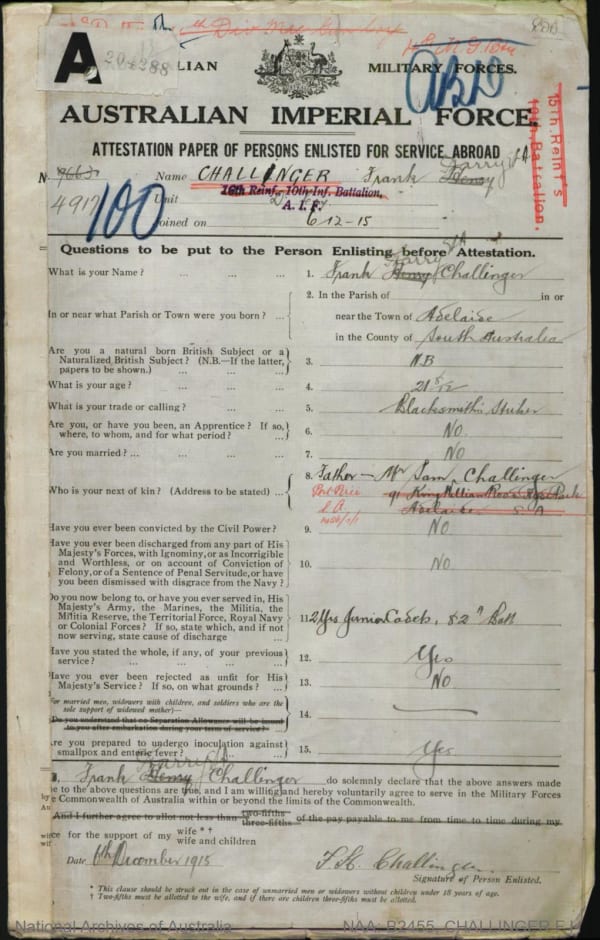 Div Mac Gun Coy
A
204288
ALIAN MILITARY FORCES.
AUSTRALIAN IMPERIAL FORCE.
ATTESTATION PAPER OF PERSONS ENLISTED FOR SERVICE ABROAD
15th Reinf's
10th Battalion.
N Name CHALLINGER Frank Harry Henry
4917
100
Unit 16th Reinf. 10th Inf. Battalion,
A. I. F.
Joined on 6-12-15
Questions to be put to the Person Enlisting before Attestation.
What is your Name? ... ... ... 1. Frank Henry Harry Challinger
In or near what Parish or Town were you born? ... 2. In the Parish of in or
near the Town of Adelaide
in the County of South Australia
Are you a natural born British Subject or a
Naturalized British Subject? (N.B.—If the latter,
papers to be shown.) ... ... 3. N.B
What is your age? ... ... ... 4. 21 8/12
What is your trade or calling? ... ... 5. Blacksmith's Striker
Are you, or have you been, an Apprentice? If so,
where, to whom, and for what period? ... 6. No
Are you married? ... ... ... ... 7. No
Who is your next of kin? (Address to be stated) ... 8. Father — Mr Sam. Challinger
Port Pirie 91 King William Road Hyde Park
S A Adelaide S A
Have you ever been convicted by the Civil Power? 9. No
Have you ever been discharged from any part of His
Majesty's Forces, with Ignominy, or as Incorrigible
and Worthless, or on account of Conviction of
Felony, or of a Sentence of Penal Servitude, or have
you been dismissed with disgrace from the Navy? 10. No
Do you now belong to, or have you ever served in, His
Majesty's Army, the Marines, the Militia, the
Militia Reserve, the Territorial Force, Royal Navy
or Colonial Forces? If so, state which, and if not
now serving, state cause of discharge ... 11. 2 Yrs Junior Cadets, 82n Batt
Have you stated the whole, if any, of your previous
service? ... ... ... ... 12. Yes
Have you ever been rejected as unfit for His
Majesty's Service? If so, on what grounds? ... 13. No
For married men, widowers with children, and soldiers who are the
sole support of widowed mother)—
Do you understand that no Separation Allowance will be issued
to you after embarkation during your term of service? 14. —
Are you prepared to undergo inoculation against
smallpox and enteric fever? ... ... 15. Yes
I, Frank Henry Harry Challinger do solemnly declare that the above answers made
me to the above questions are true, and I am willing and hereby voluntarily agree to serve in the Military Forces
e Commonwealth of Australia within or beyond the limits of the Commonwealth.
And I further agree to allot not less than two-fifths three-fifths of the pay payable to me from time to time during my
vice for the support of my wife * † wife and children
Date 6th December 1915 F. H. Challinger
Signature of Person Enlisted.
* This clause should be struck out in the case of unmarried men or widowers without children under 18 years of age.
† Two-fifths must be allotted to the wife, and if there are children three-fifths must be allotted.
National Archives of Australia NAA: B2455, CHALLINGER F H